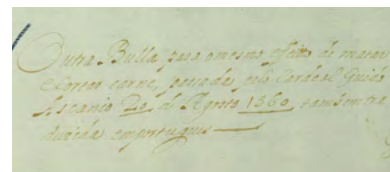 Outra Bulla para o mesmo efeito de matar
e cortar carne, passada pelo Cardeal Guido
Ascanio 20 de Agosto 1560 tambem tra
duzida em portugues